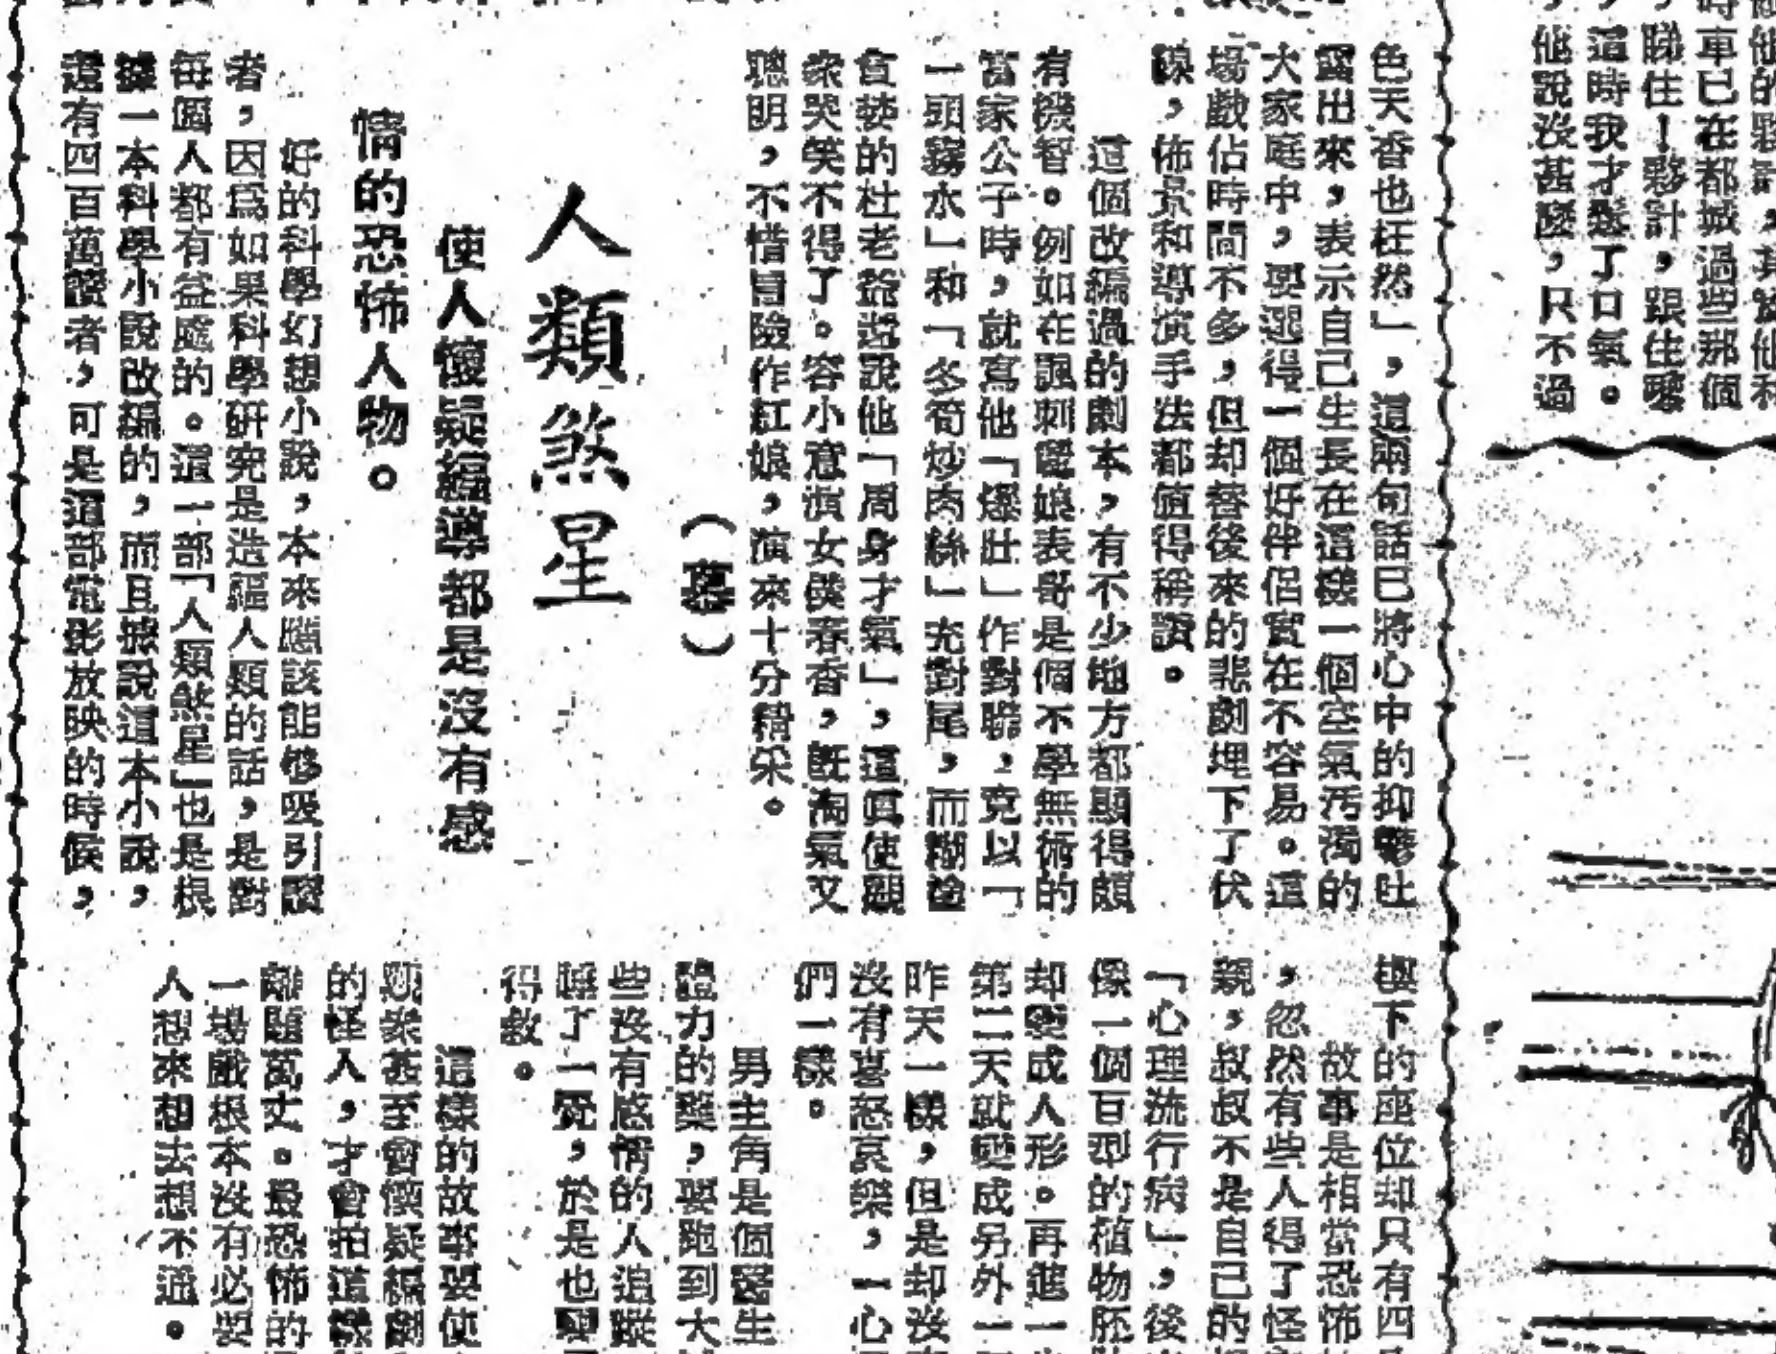 色天香也枉然」，這兩句話已將心中的抑鬱吐
露出來，表示自己生長在這樣一個空氣汚濁的
大家庭中，要選得一個好伴侶實在不容易。這
場戲佔時間不多，但却替後來的悲劇埋下了伏
線，佈景和導演手法都值得稱讚。
這個改編過的劇本，有不少地方都顯得頗
有機智。例如在諷刺表哥是個不學無術的
富家公子時，就寫他「爆肚」作對聯，竟以「
一頭霧水」和「冬筍炒肉絲」充對尾，而糊塗
的杜老爺說他「周身才氣」，這眞使觀
衆哭笑不得了。容小意演女僕春香，旣淘氣又
聰明，不惜冒險作紅娘，演來十分精采。
人類煞星
使人懷疑編導都是沒有感
情的恐怖人物。
好的科學幻想小說，本來應該能够吸引讀
者，因爲如果科學硏究是造福人類的話，是對
每個人都有益處的。這一部「人類煞星」也是根
據一本科學小說改編的，而且據說這本小說，
還有四百萬讀者，可是這部電影放映的時候，
樓下的座位却只有四
故事是相當恐怖
，忽然有些人得了怪
親，叔叔不是自己的
「心理流行病」，後
像一個百型的植物胚
却變成人形。再進一
第二天就變成另外一
昨天一樣，但是却沒
沒有喜怒哀樂，一心
們一樣。
男主角是個醫生
體力的藥，要跑到大
些沒有感情的人追蹤
睡了一覺，於是也
得救。
這樣的故事要使
觀衆甚至會懷疑編劇
的怪人，才會拍這樣
離題萬丈。最恐怖的
一場戲根本沒有必要
人想來想去想不通。
時車已在都城過些那個
睇住！夥計，跟住
，這時我才鬆了口氣。
，他說沒甚麼，只不過